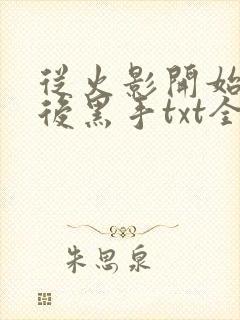 從火影開始
後黑手txt全
朱思泉